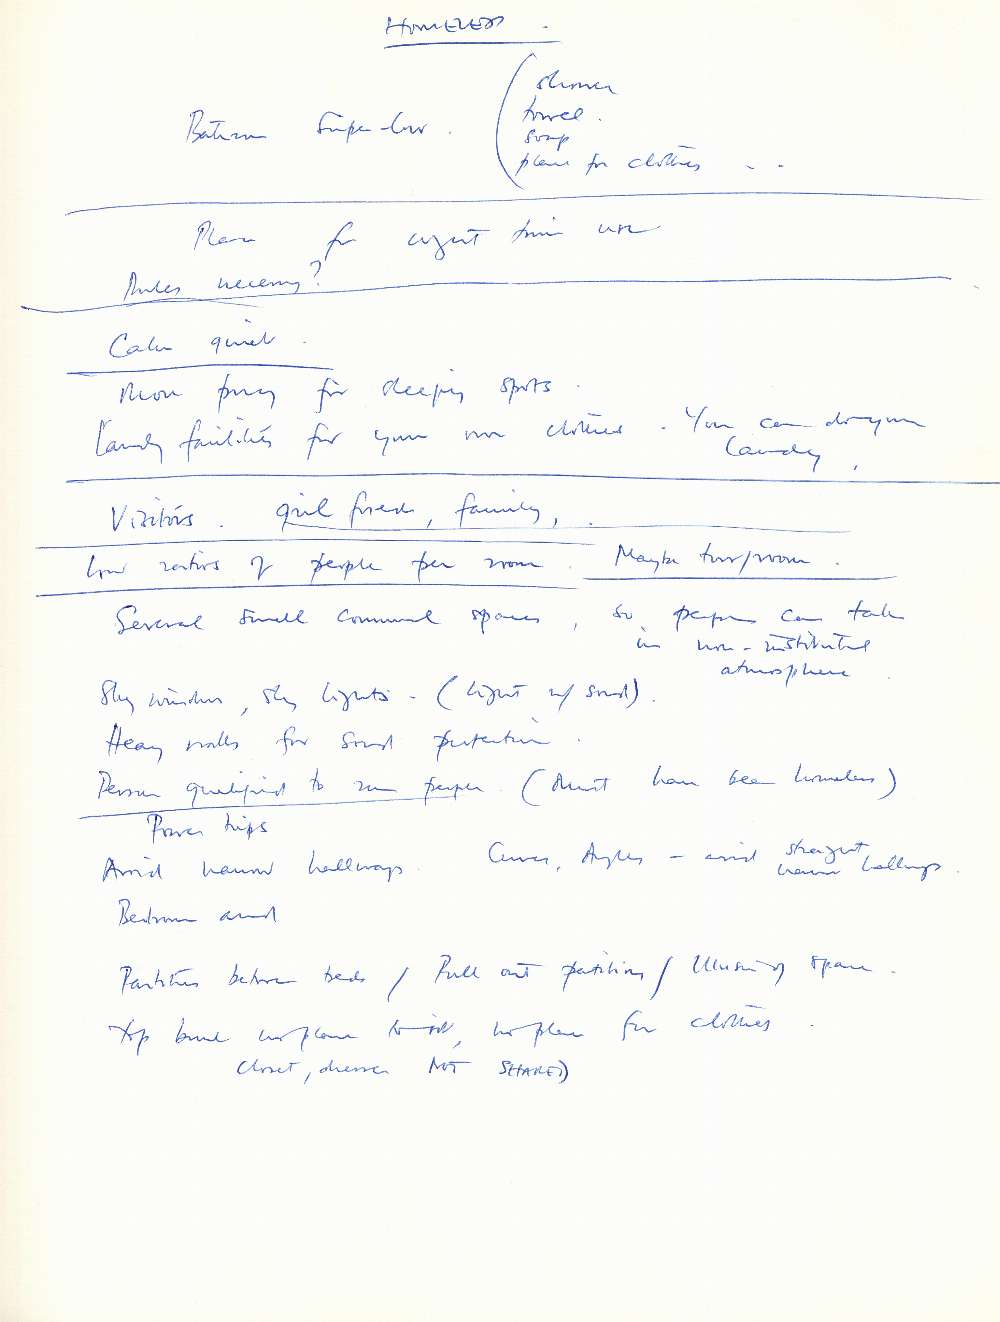 HOMELESS
Bathroom
(shower
towel.
soap
place for clothes - -
Place for urgent time use
Rules necessary?
Calm quiet.
More privacy for sleeping spots.
Laundry facilities for your own clothes. You can do your
laundry,
Visitors. girl friend, family,
low ratios of people per room. Maybe two/room.
Several small communal spaces, so people can talk
in non-institutional
atmosphere
Sky window, sky lights - (light w/ sound).
Heavy walls for sound protection.
Person qualified to run people. (Must have been homeless)
Power trips
Avoid narrow hallways. Curves, Angles - avoid straight
narrow hallways.
Bedroom and
Partitions between beds / Pull out partitions / Illusion of space.
top bunk no place to sit, no place for clothes.
closet, dresser NOT SHARED)